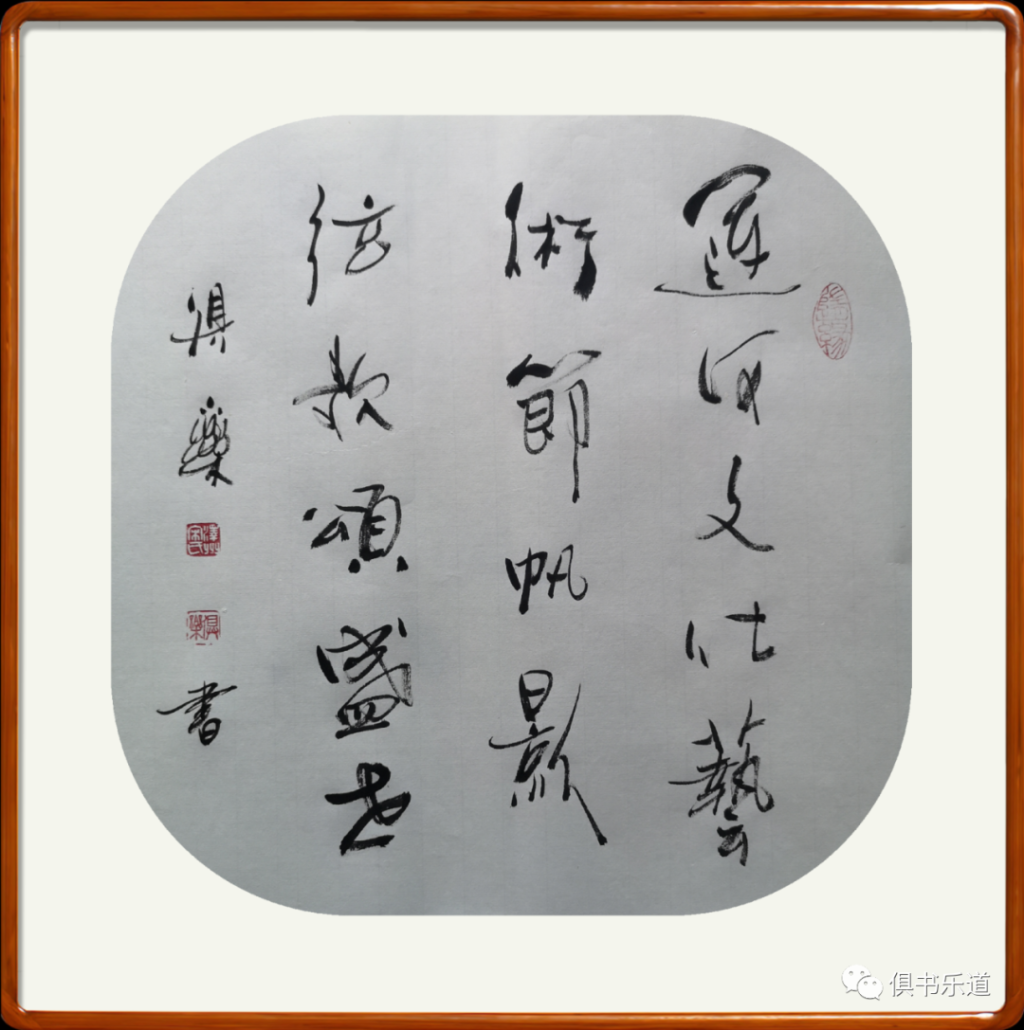 運河文化藝
術節帆影
弦歌頌盛世
俱樂
書
俱书乐道